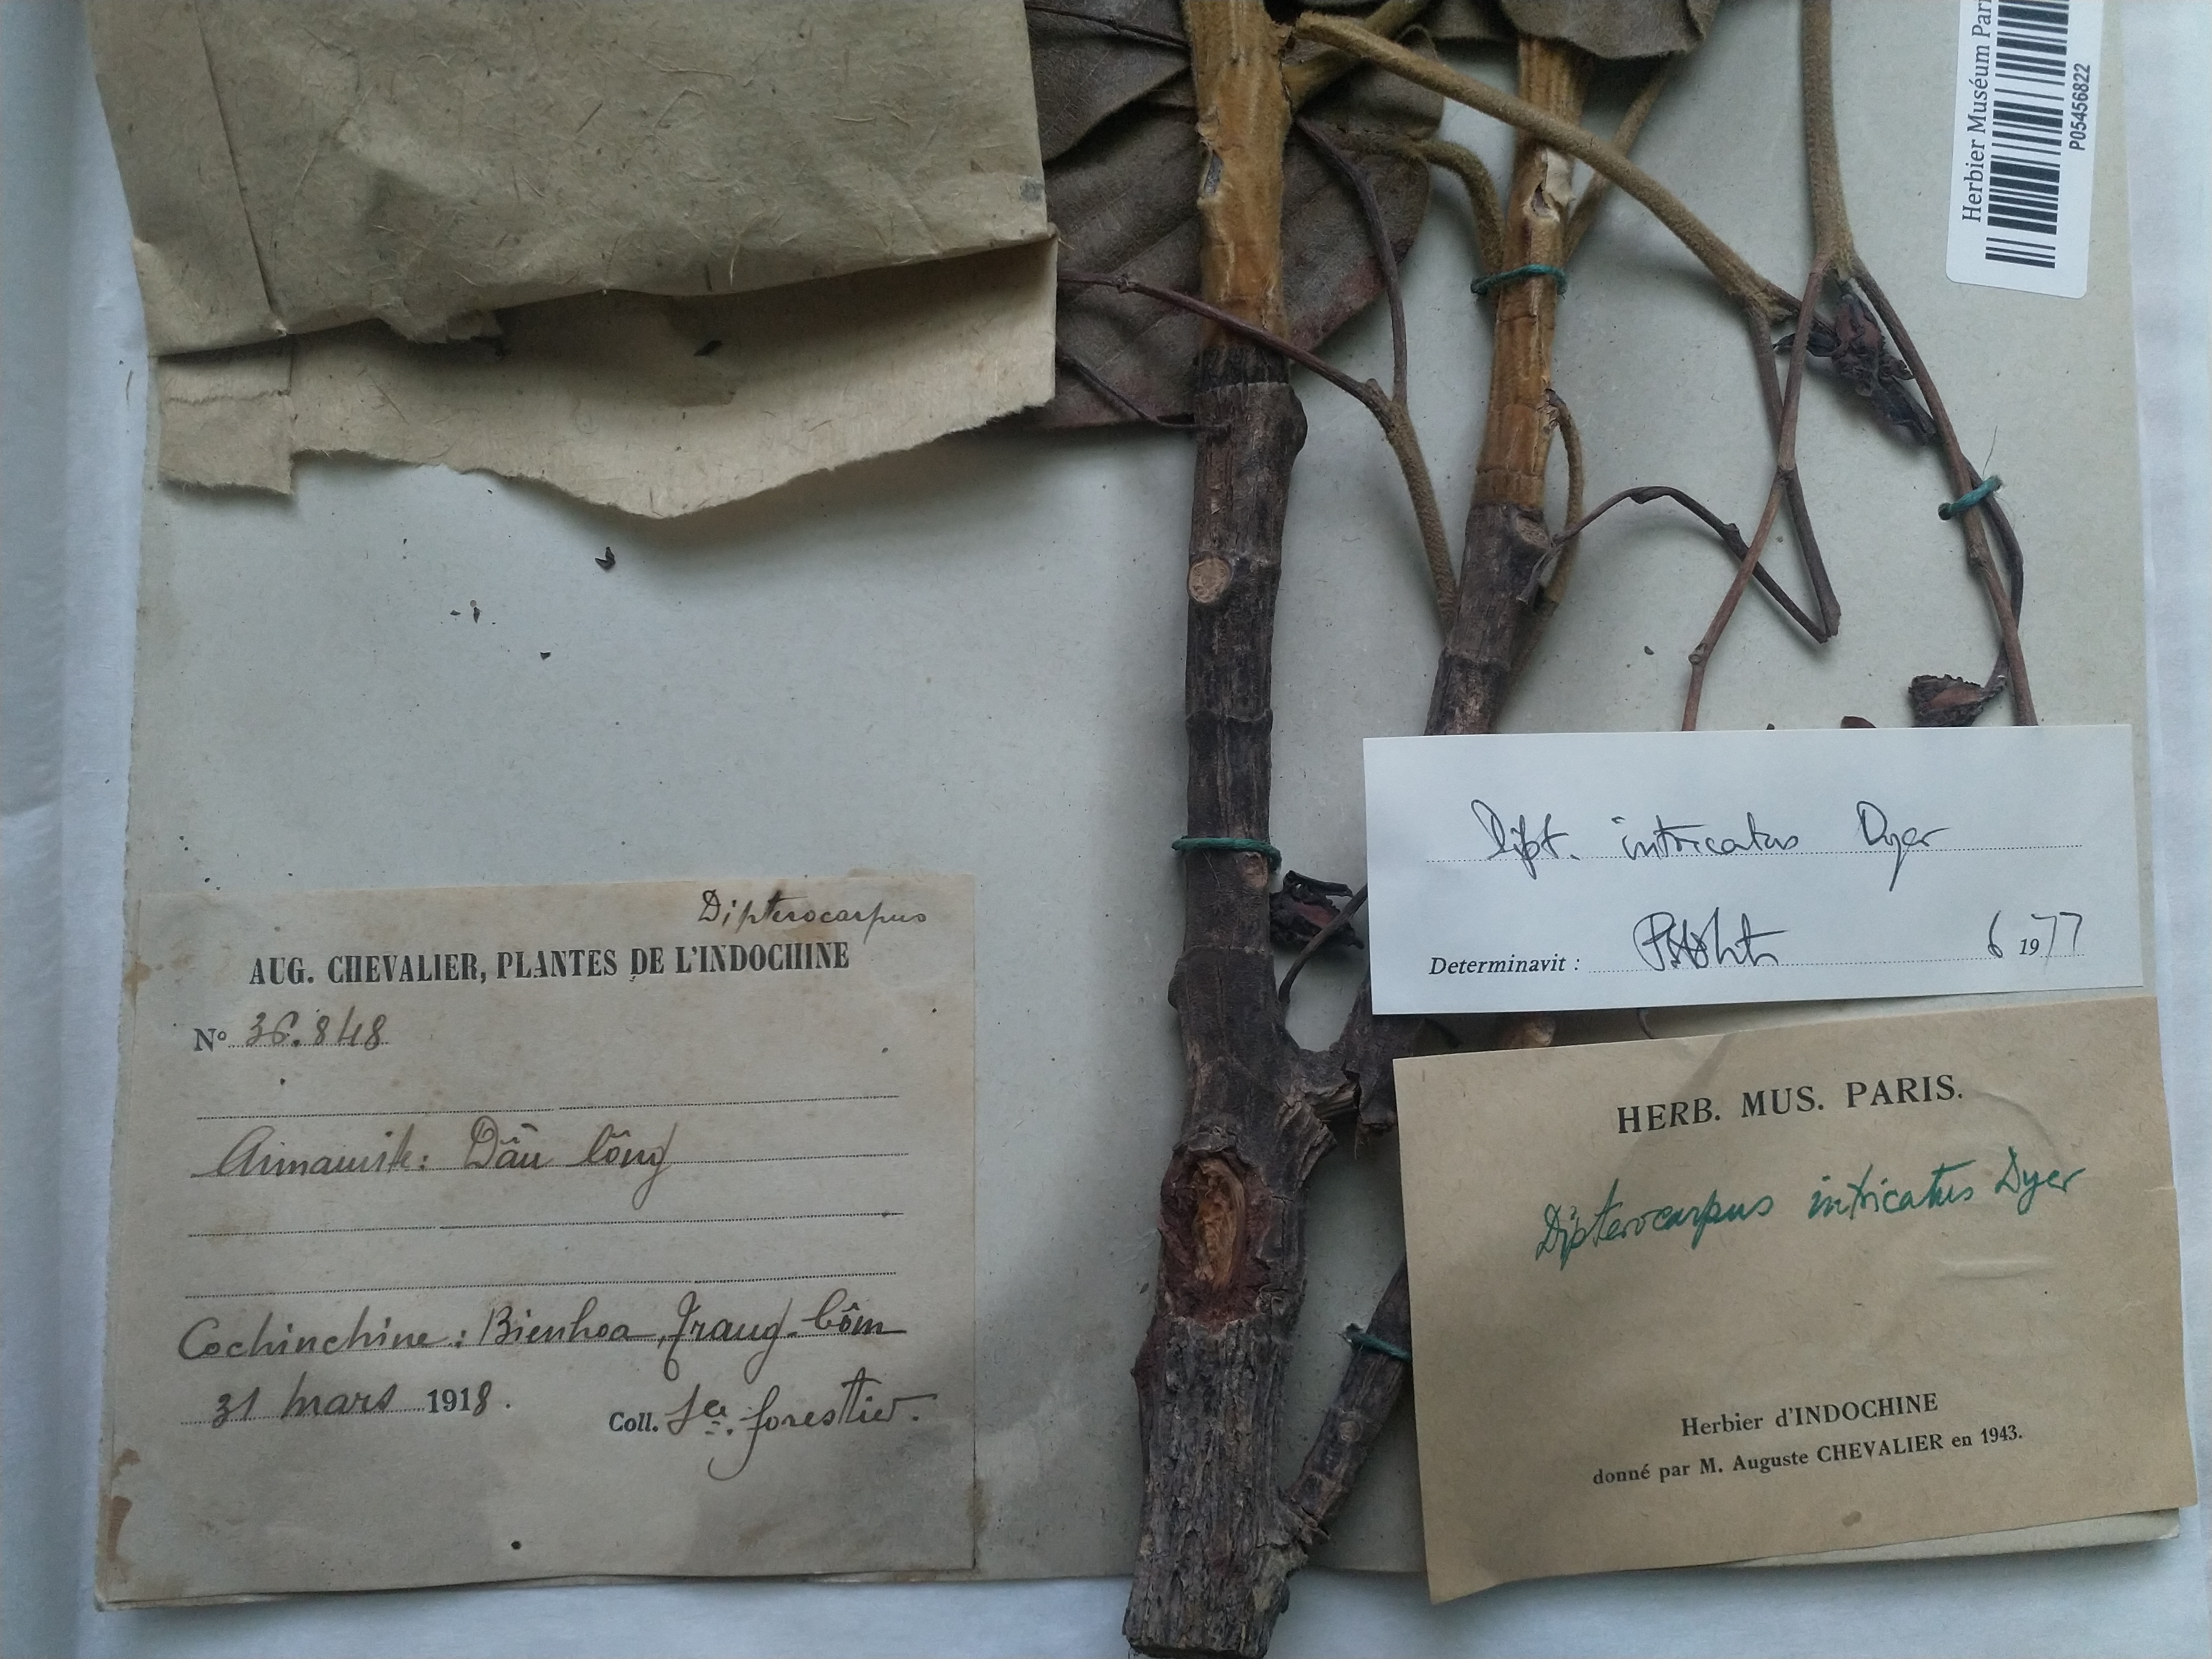 Herbier Muséum Pari
P05456822
Dipt. intricatus Dyer
Determinavit : 6 1977
Dipterocarpus
AUG. CHEVALIER, PLANTES DE L'INDOCHINE
No 36.848
Dâù lông
Cochinchine: Bienhoa, Trang-bôm
31 mars 1918.
Coll. Sce. forestier.
HERB. MUS. PARIS.
Dipterocarpus intricatus Dyer
Herbier d'INDOCHINE
donné par M. Auguste CHEVALIER en 1943.